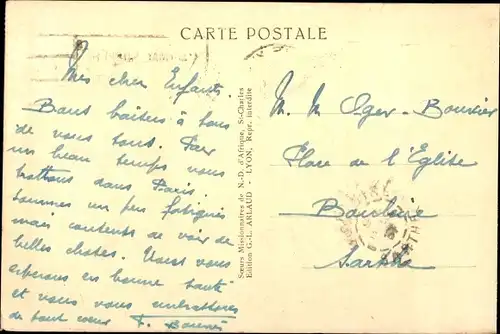 CARTE POSTALE
Mes cher Enfants.
Bons baisers à tous
de vous tous. Par
un beau temps nous
trottons dans Paris.
sommes un peu fatigués
mais contents de voir de
belles choses. Vous
esperons en bonne santé
et vous embrassons
de tout cœur F.
Sœurs Missionnaires de N.-D. d'Afrique, St-Charles
Edition G.-L. ARLAUD - LYON, Repr. interdite
M. M Oger-Bouvier
Place de l'Eglise
Bouloire
Sarthe